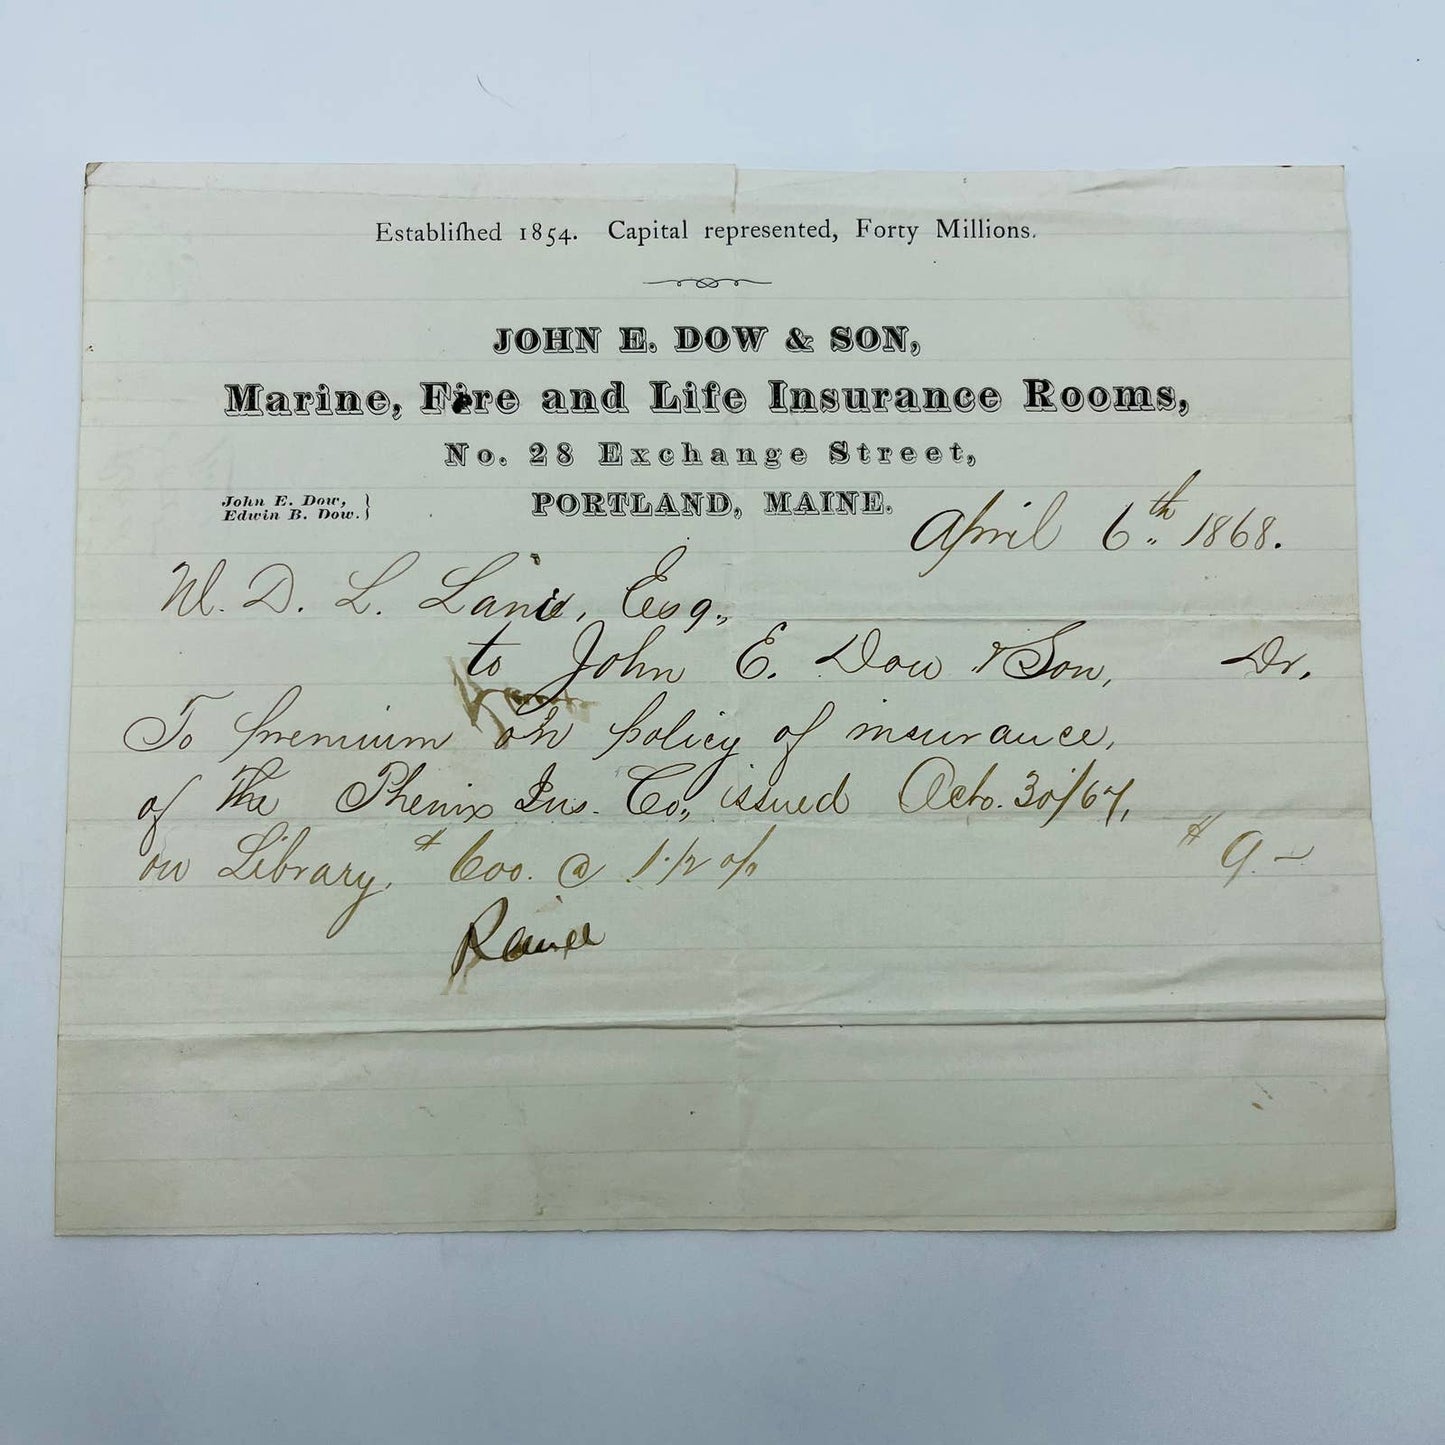 Eſtabliſhed 1854. Capital represented, Forty Millions.
JOHN E. DOW & SON,
Marine, Fire and Life Insurance Rooms,
No. 28 Exchange Street,
John E. Dow,
Edwin B. Dow.
PORTLAND, MAINE.
April 6th 1868.
D. L. Esq.,
to John E. Dow & Son, Dr.
To premium on policy of insurance,
of The Phenix Ins. Co., issued Octo. 30/67,
on Library, $600. @ 1.1/2 o/o $9.—